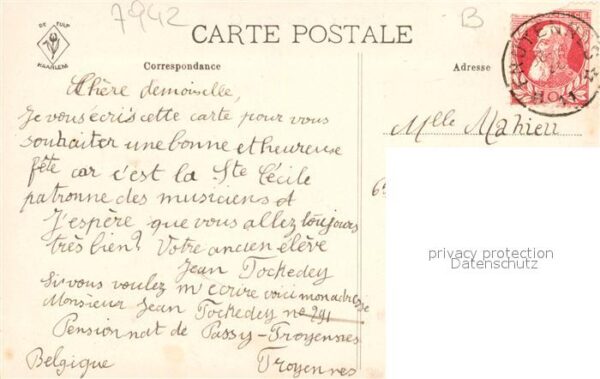 7942
B
DE TULP
HAARLEM
CARTE POSTALE
Correspondance
Adresse
Chère demoiselle,
Je vous écris cette carte pour vous
souhaiter une bonne et heureuse
fête car c'est la Ste Cécile
patronne des musiciens et
J'espère que vous allez toujours
très bien? Votre ancien élève
Jean Tockedey
Si vous voulez m'écrire voici mon adresse
Monsieur Jean Tockedey no 291
Pensionnat de Passy-Froyennes
Belgique Froyennes
Mlle Mahieu
privacy protection
Datenschutz